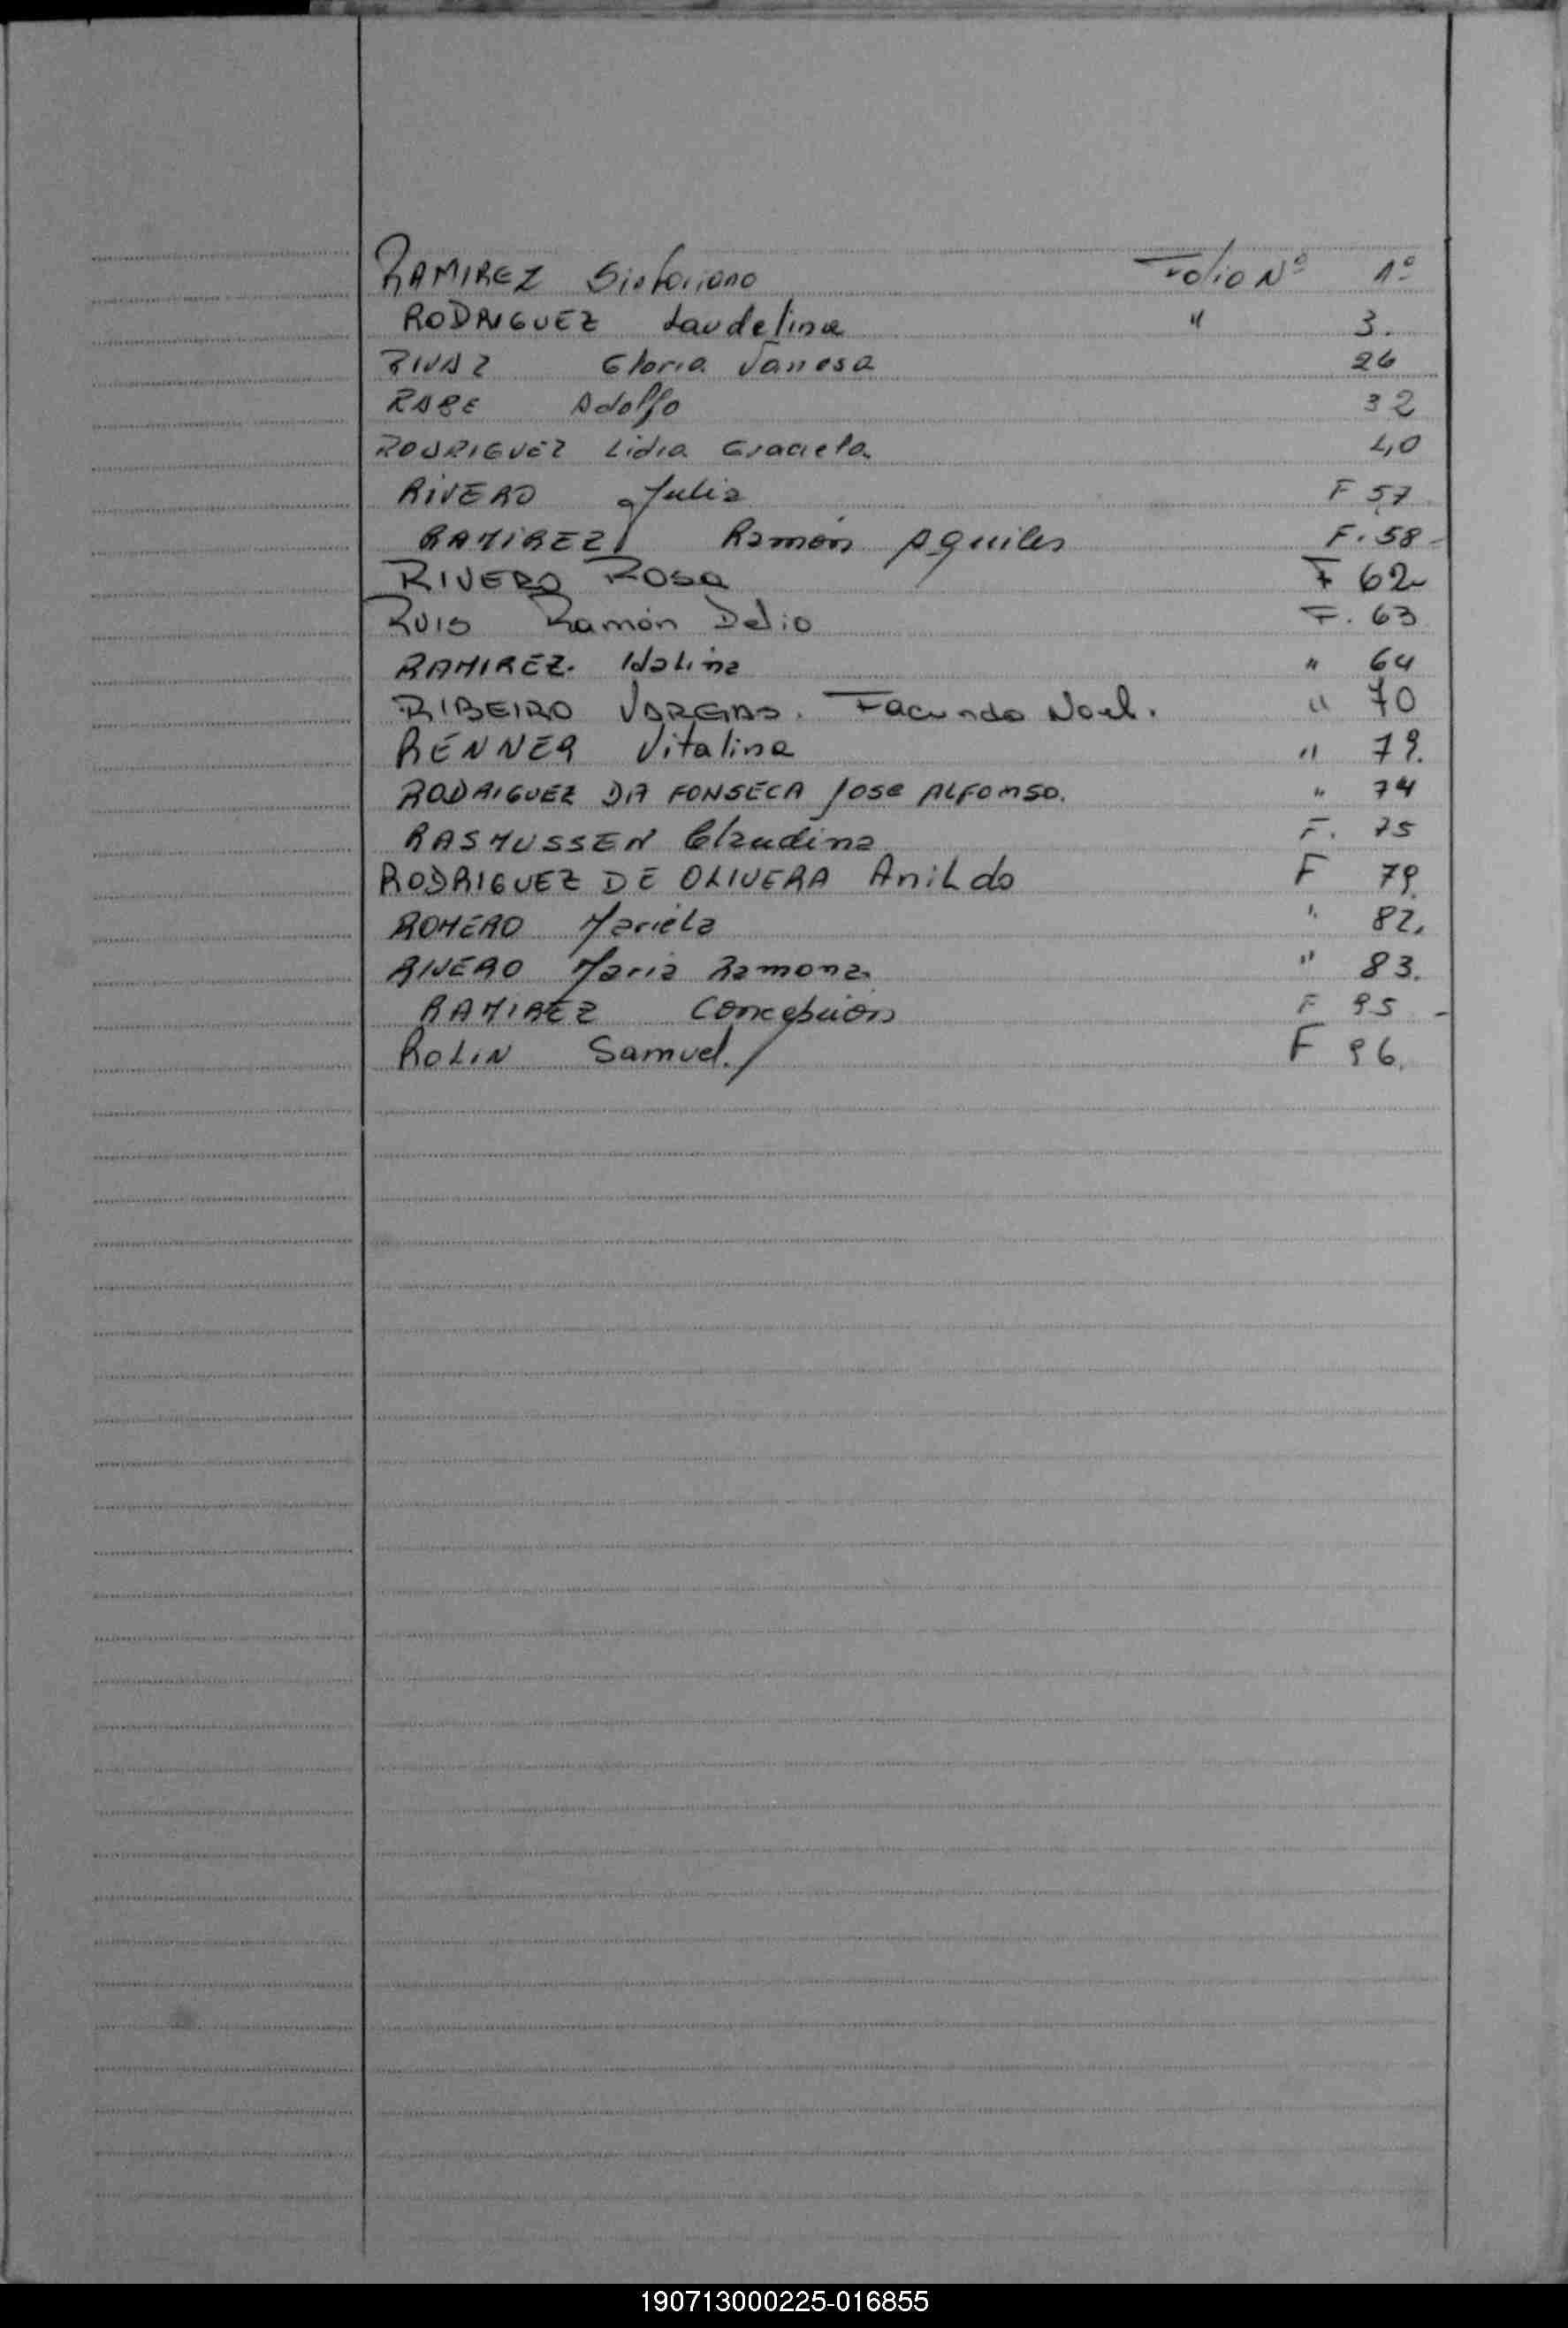 RAMIREZ Sinforiano Folio Nº 1º
RODRIGUEZ Laudelina " 3.
RIVAZ Gloria Vanesa 26
RABE Adolfo 32
RODRIGUEZ Lidia Graciela 40
RIVERO Julia F 57
RAMIREZ Ramón Aquiles F. 58-
RIVERO ROSA F 62
RUIS Ramón Delio F. 63
RAMIREZ. Idalina " 64
RIBEIRO VARGAS. Facundo Noel. " 70
RENNER Vitalina "
RODRIGUEZ DA FONSECA Jose ALFONSO. " 74
RASMUSSEN Claudina F. 75
RODRIGUEZ DE OLIVERA Anildo F 79.
ROMERO Mariela " 82.
RIVERO Maria Ramona " 83.
RAMIREZ Concepción F 95 -
ROLIN Samuel. F 96.
190713000225-016855